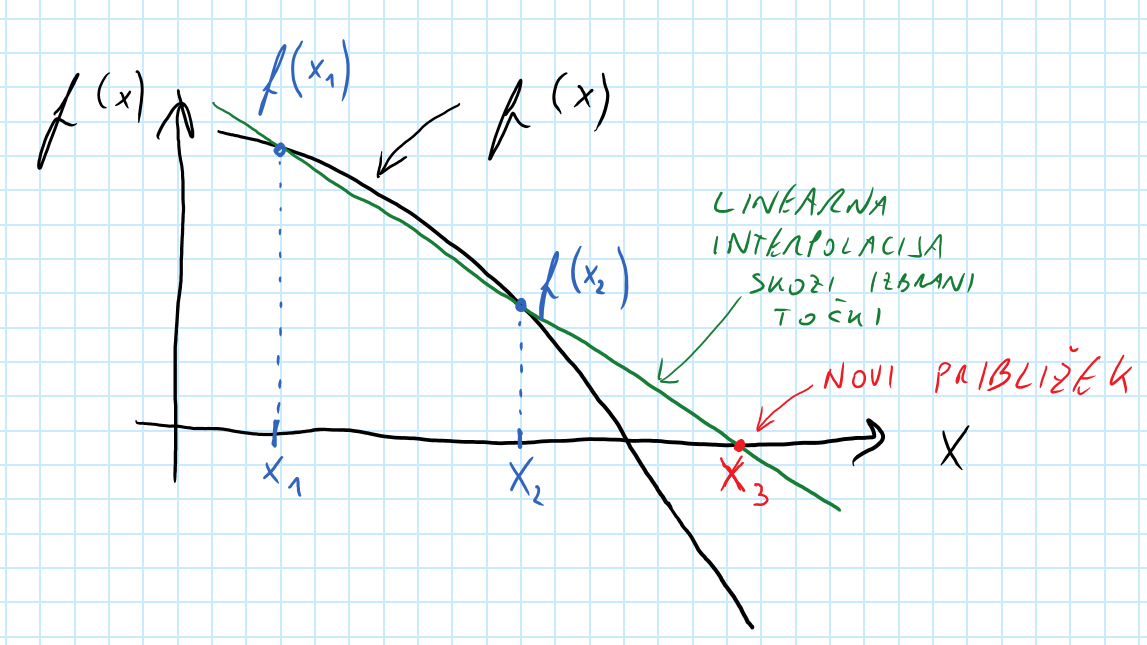 f(x)
f(x₁)
f(x)
LINEARNA
INTERPOLACIJA
SKOZI IZBRANI
TOČKI
f(x₂)
NOVI PRIBLIŽEK
x₁
x₂
x₃
x